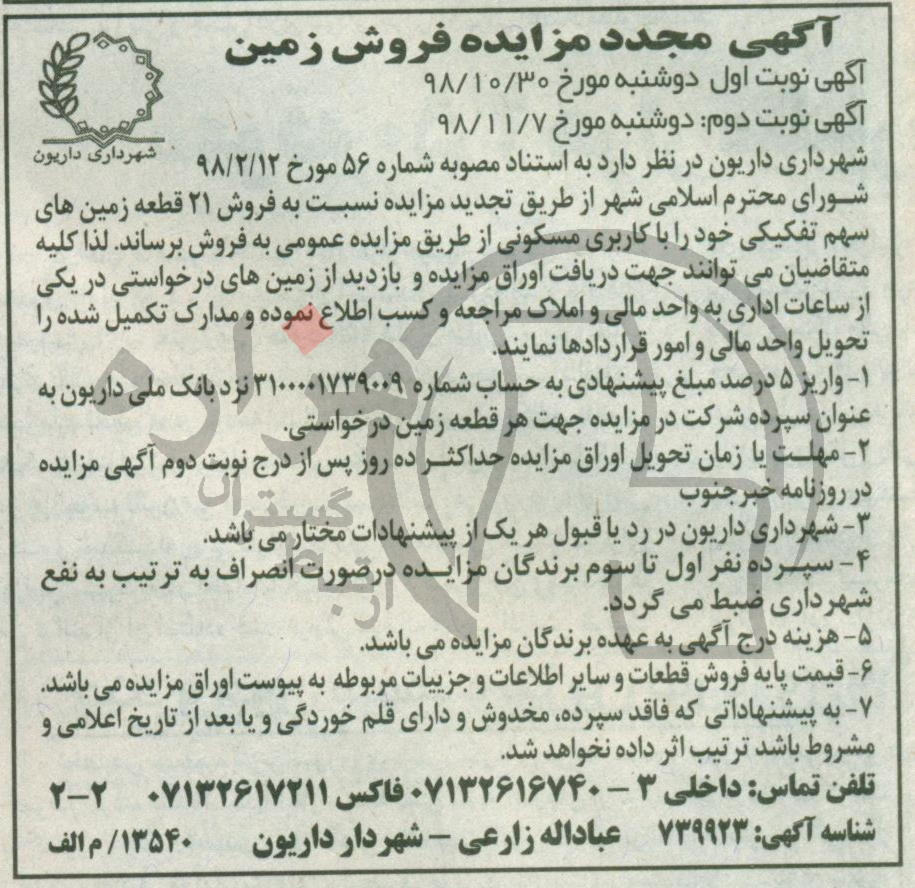 آگهی مجدد مزایده فروش زمین
آگهی نوبت اول دوشنبه مورخ ۹۸/۱۰/۳۰
آگهی نوبت دوم: دوشنبه مورخ ۹۸/۱۱/۷
شهرداری داریون
شهرداری داریون در نظر دارد به استناد مصوبه شماره ۵۶ مورخ ۹۸/۲/۱۲
شورای محترم اسلامی شهر از طریق تجدید مزایده نسبت به فروش ۲۱ قطعه زمین های
سهم تفکیکی خود را با کاربری مسکونی از طریق مزایده عمومی به فروش برساند. لذا کلیه
متقاضیان می توانند جهت دریافت اوراق مزایده و بازدید از زمین های درخواستی در یکی
از ساعات اداری به واحد مالی و املاک مراجعه و کسب اطلاع نموده و مدارک تکمیل شده را
تحویل واحد مالی و امور قراردادها نمایند.
۱- واریز ۵ درصد مبلغ پیشنهادی به حساب شماره ۳۱۰۰۰۰۱۷۳۹۰۰۹ نزد بانک ملی داریون به
عنوان سپرده شرکت در مزایده جهت هر قطعه زمین درخواستی.
۲- مهلت یا زمان تحویل اوراق مزایده حداکثر ده روز پس از درج نوبت دوم آگهی مزایده
در روزنامه خبرجنوب
۳- شهرداری داریون در رد یا قبول هر یک از پیشنهادات مختار می باشد.
۴- سپرده نفر اول تا سوم برندگان مزایده درصورت انصراف به ترتیب به نفع
شهرداری ضبط می گردد.
۵- هزینه درج آگهی به عهده برندگان مزایده می باشد.
۶- قیمت پایه فروش قطعات و سایر اطلاعات و جزییات مربوطه به پیوست اوراق مزایده می باشد.
۷- به پیشنهاداتی که فاقد سپرده، مخدوش و دارای قلم خوردگی و یا بعد از تاریخ اعلامی و
مشروط باشد ترتیب اثر داده نخواهد شد.
تلفن تماس: داخلی ۳ - ۰۷۱۳۲۶۱۶۷۴۰ فاکس ۰۷۱۳۲۶۱۷۲۱۱ ۲-۲
شناسه آگهی: ۷۳۹۹۲۳ عباداله زارعی - شهردار داریون ۱۳۵۴۰/ م الف
هزاره